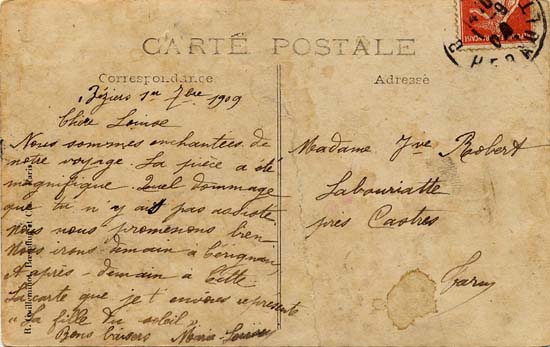 CARTE POSTALE
Correspondance
Adressé
Béziers 1er 7bre 1909
Chère Louise
Nous sommes enchantées de
notre voyage. La pièce a été
magnifique. Quel dommage
que tu n'y ait pas assisté.
Nous nous promenons bien
Nous irons demain à Sérignan,
et après-demain à Cette
La carte que je t'envoies représente
"La fille du soleil"
Bons baisers Marie-Louise
Madame Vve Robert
Labouriatte
près Castres
Tarn